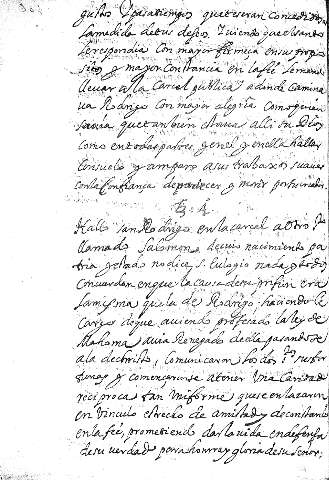 gustos y pasatiempos que te seran concedidos
a la medida de tus deseos. Viendo que el santo
le respondia con mayor firmeça en su propo
sito, y mayor constancia en la fee, le mando
llevar a la carcel publica, adonde camina
va Rodrigo con mayor alegria, como quien
savia que tanbien estava alli Dios
como en todas partes, y en el y en ella hallar
consuelo y amparo a sus trabaxos
con la confiança de padecer, y morir por su
§. 4.
Hallo san Rodrigo en la carcel a otro
llamado Salomon, de cuio nacimiento, pa
tria, y estado no dice S. Eulogio nada, y todos
concuerdan en que la causa de su prision era
la misma que la de Rodrigo, haciendole
cargo de que aviendo profesado la ley de
Mahoma, avia renegado de ella pasandose
a la de christo, comunicaron los dos sus for
tunas y començaronse a tener una caridad
reciproca tan uniforme que se enlaçaron
en vinculo estrecho de amistad, y de constancia
en la fee, prometiendo dar la vida en defensa
de su verdad para honrra y gloria de su señor;